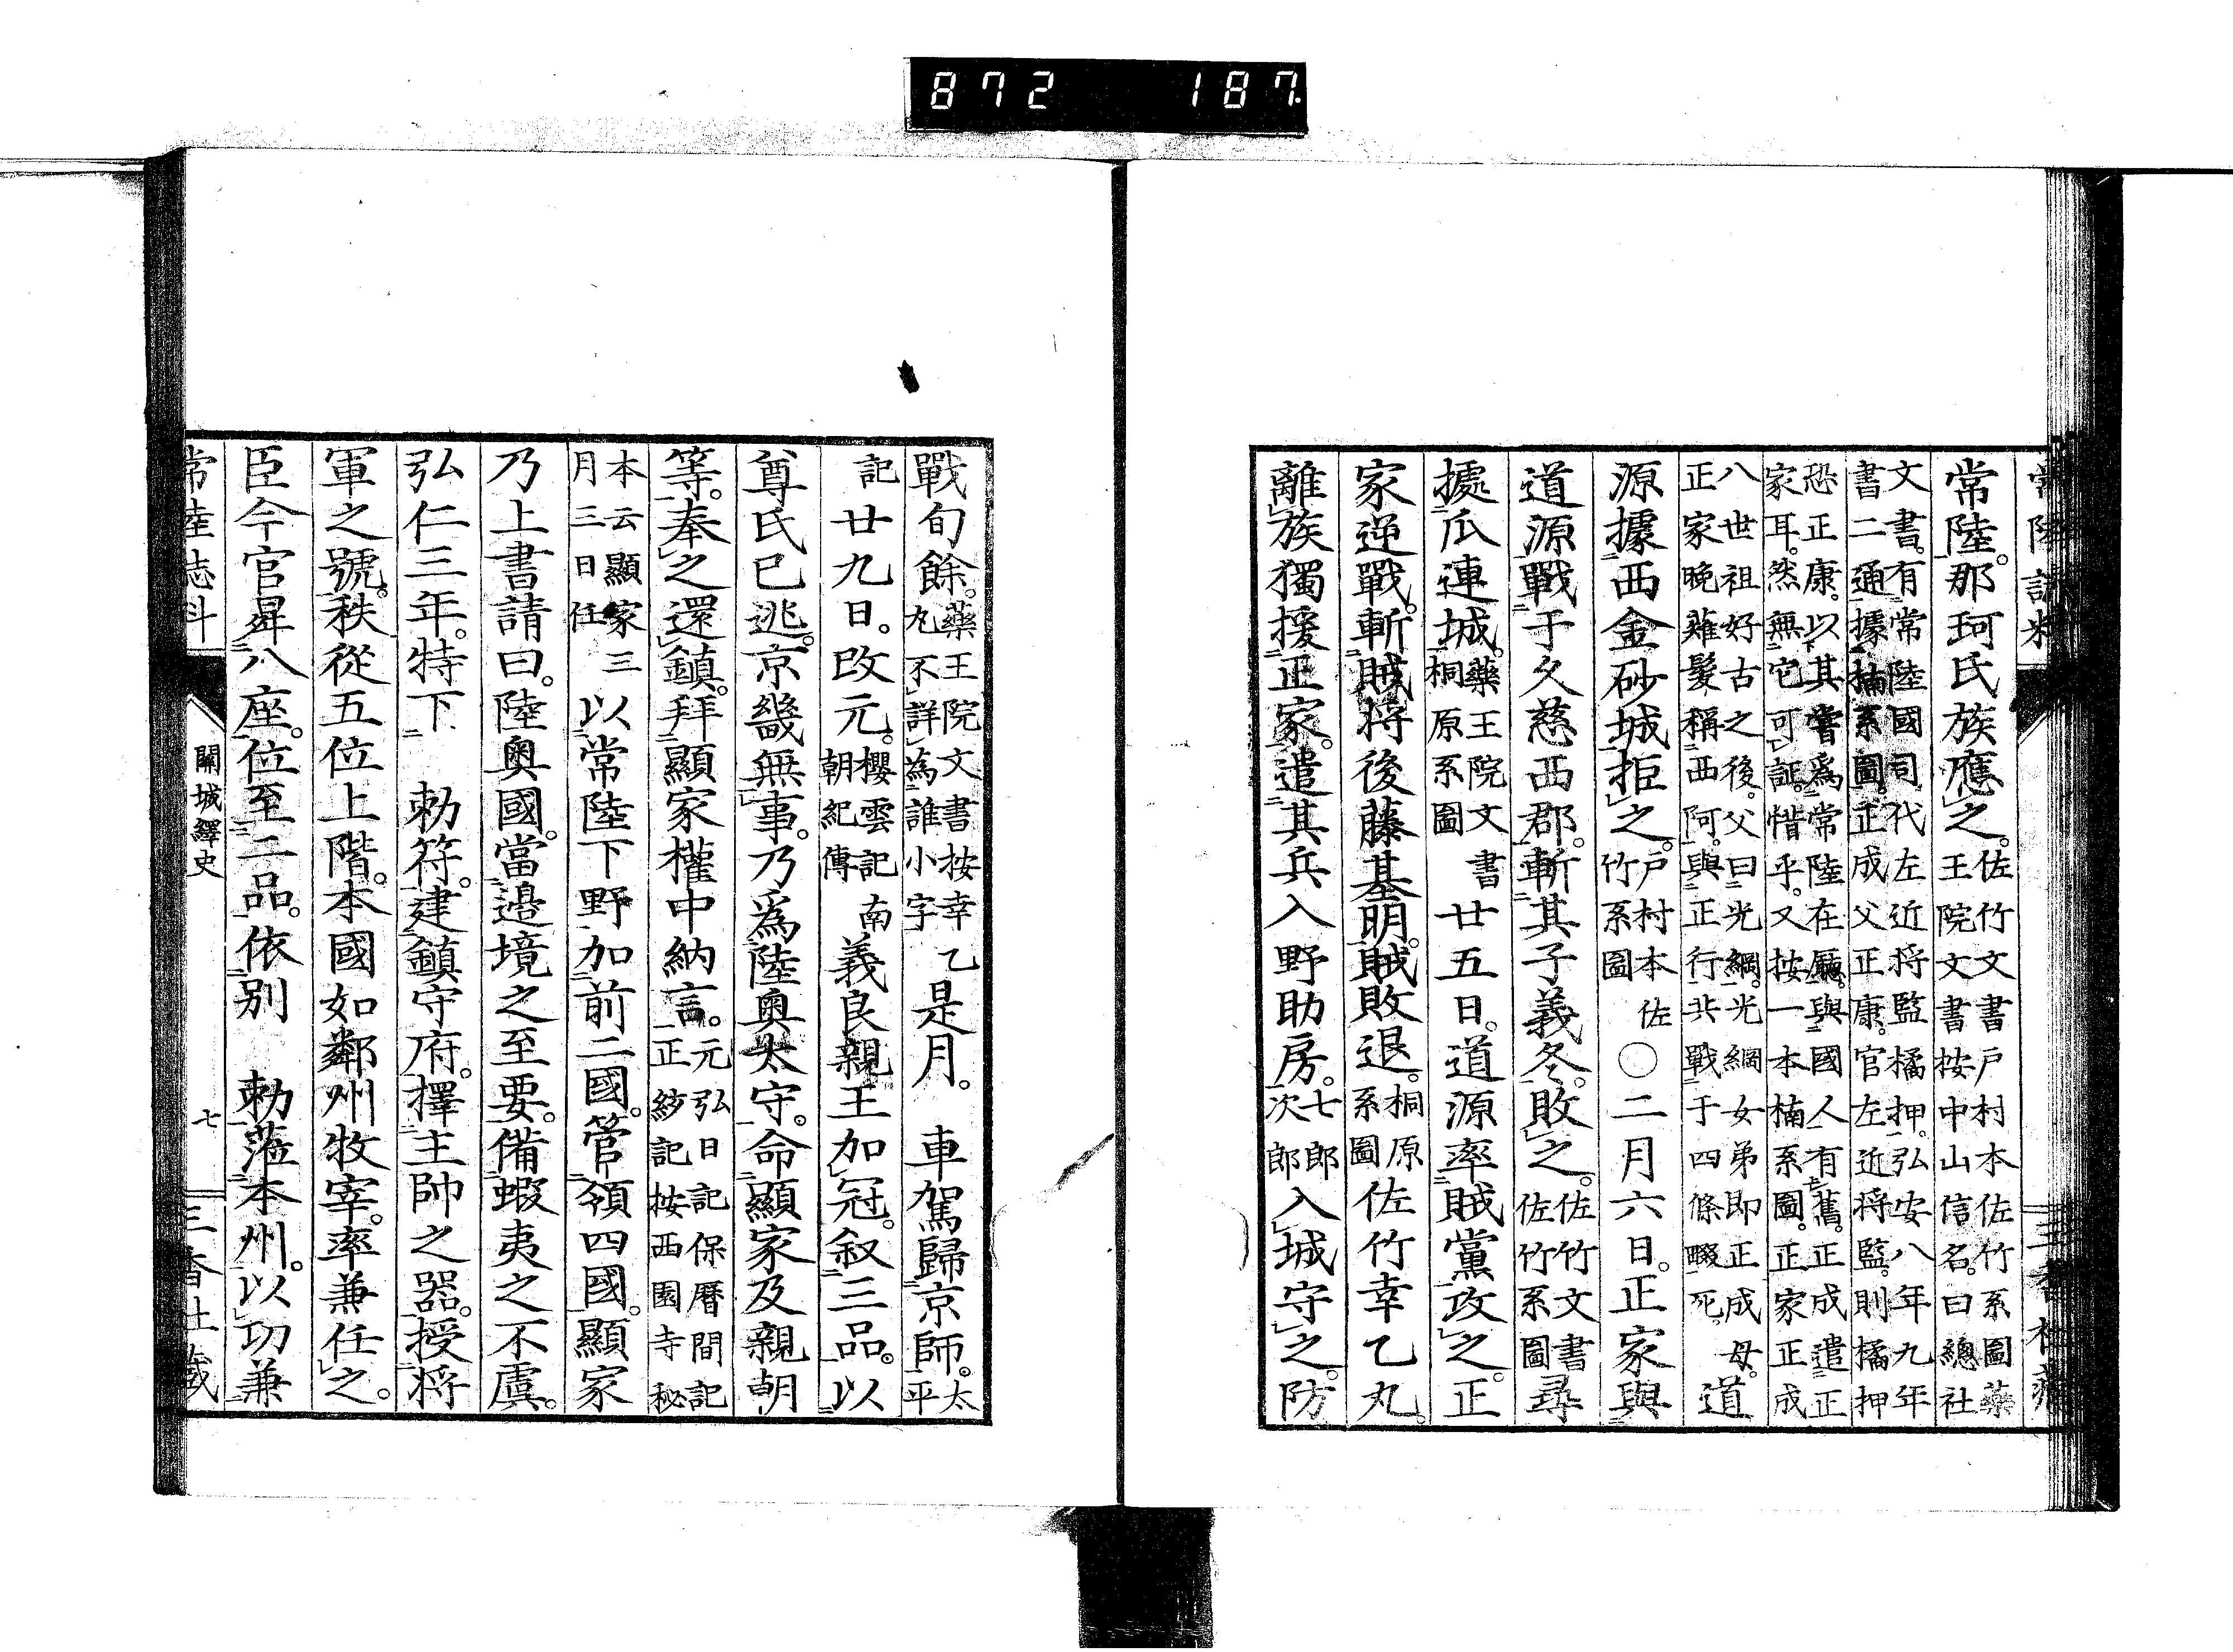 872 187
常陸誌料
常陸。那珂氏族應之。佐竹文書戸村本佐竹系圖藥王院文書按中山信名。曰總社
文書。有常陸國司代左近将監橘押。弘安八年九年書二通據楠系圖。正成父正康。官左近将監。則橘押
恐正康。以其嘗爲常陸在廳。與國人有舊。正成遣正家耳。然無它可証。惜乎。又按一本楠系圖。正家正成
八世祖好古之後。父曰光綱。光綱女弟即正成母。正家晩薙髮稱西阿。與正行共戰于四條畷死。道
源據西金砂城拒之。戸村本佐竹系圖〇二月六日。正家與
道源戰于久慈西郡。斬其子義冬。敗之。佐竹文書佐竹系圖尋
據瓜連城。藥王院文書桐原系圖廿五日。道源率賊黨攻之。正
家逆戰。斬賊将後藤基明。賊敗退。桐原系圖佐竹幸乙丸。
離族獨援正家。遣其兵入野助房。七郎次郎入城守之。防
戰旬餘。藥王院文書按幸乙丸不詳爲誰小字是月。車駕歸京師。太平
記廿九日。改元。櫻雲記南朝紀傳義良親王加冠。叙三品。以
尊氏已逃。京畿無事。乃爲陸奥太守。命顯家及親朝
等。奉之還鎮。拜顯家權中納言。元弘日記保暦間記正紗記按西園寺秘
本云顯家三月三日任以常陸下野加前二國。管領四國。顯家
乃上書請曰。陸奥國。當邊境之至要。備蝦夷之不虞。
弘仁三年。特下 勅符。建鎮守府。擇主帥之器。授将
軍之號。秩從五位上階。本國如鄰州牧宰。率兼任之。
臣今官昇八座。位至二品。依別 勅蒞本州。以功兼
常陸志料
關城繹史
七
三香社蔵